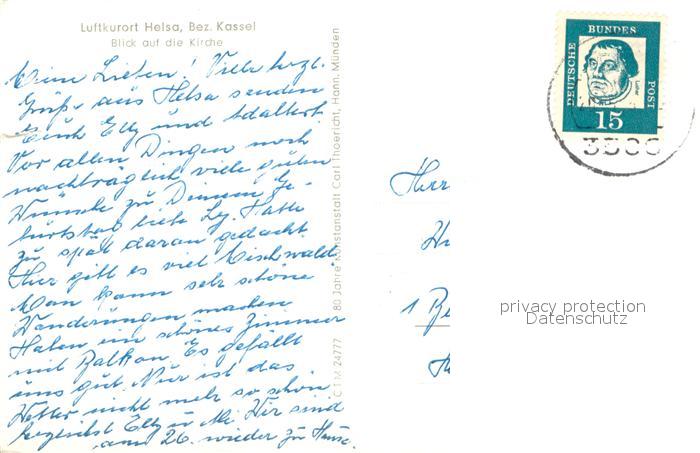 Luftkurort Helsa, Bez. Kassel
Blick auf die Kirche
Meine Lieben! Viele herzl.
Grüße aus Helsa senden
Euch Elly und Adalbert
Vor allen Dingen noch
nachträglich viele guten
Wünsche zu Deinem Ge-
burtstag liebe Hatte
zu spät daran gedacht.
Hier gibt es viel Mischwald
Man kann sehr schöne
Wanderungen machen
Haben ein schönes Zimmer
mit Balkon. Es gefällt
uns gut. Nur ist das
Wetter nicht mehr so schön
Elly u. Wir sind
am 26. wieder zu Hause.
80 Jahre Kunstanstalt Carl Thoericht, Hann. Münden
C T M 24777
DEUTSCHE
BUNDES
POST
15
Herr
1 Be
privacy protection
Datenschutz